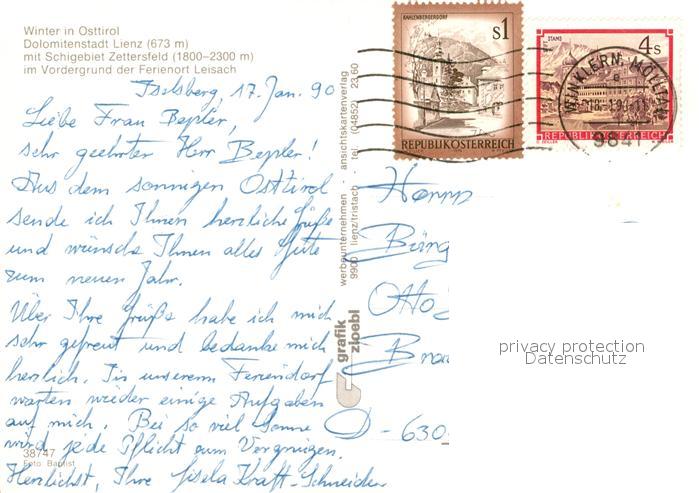 Winter in Osttirol
Dolomitenstadt Lienz (673 m)
mit Schigebiet Zettersfeld (1800–2300 m)
im Vordergrund der Ferienort Leisach
Iselsberg, 17. Jan. 90
Liebe Frau Bepler,
sehr geehrter Herr Bepler!
Aus dem sonnigen Osttirol
sende ich Ihnen herzliche Grüße
und wünsche Ihnen alles Gute
zum neuen Jahr.
Über Ihre Grüße habe ich mich
sehr gefreut und bedanke mich
herzlich. In unserem Feriendorf
warten wieder einige Aufgaben
auf mich. Bei so viel Sonne
wird jede Pflicht zum Vergnügen.
Herzlichst, Ihre Gisela Kraft-Schneider
38747
Foto Baptist
werbeunternehmen - ansichtskartenverlag
9900 lienz/tristach - tel. (04852) 23 60
grafik
zloebl
KAHLENBERGERDORF
S1
REPUBLIK ÖSTERREICH
STIFT STAMS
4s
REPUBLIK ÖSTERREICH
WINKLERN, MÖLLTAL
18.-1.90-11
9841
Herrn
Bürg
Otto
Bra
D-630
privacy protection
Datenschutz